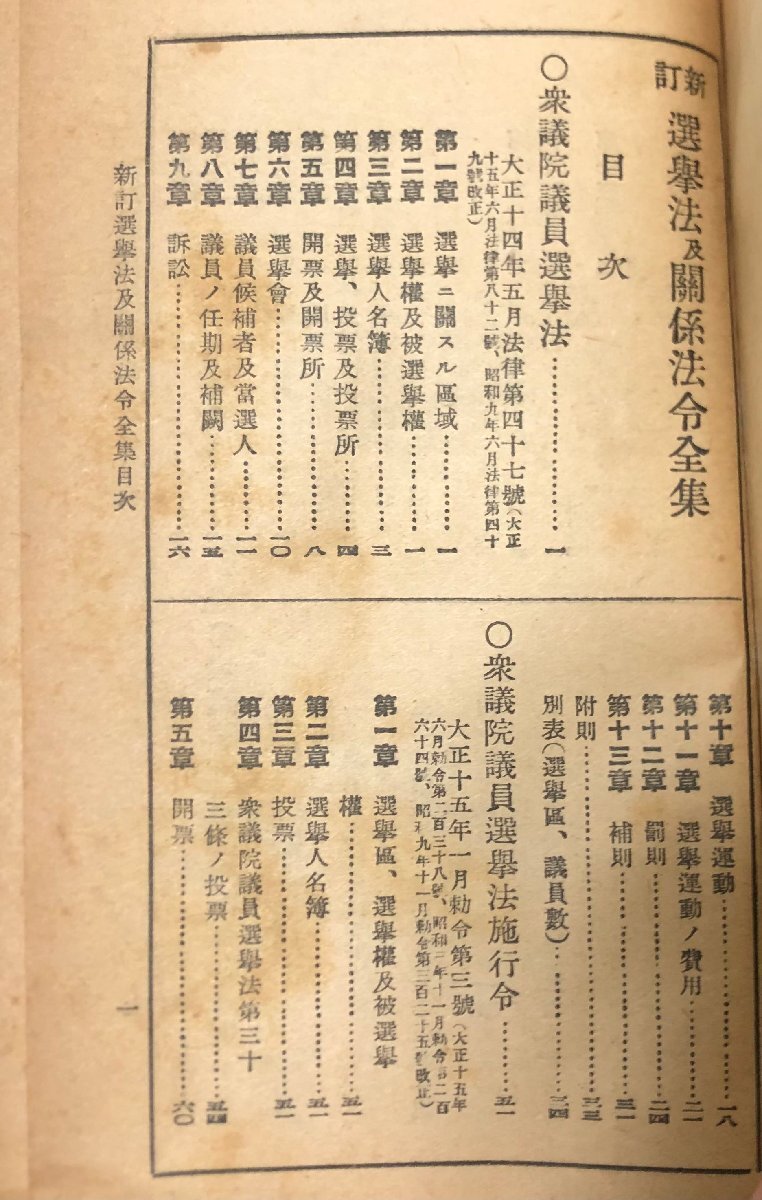 新訂 選擧法及關係法令全集
目次
○衆議院議員選擧法…………一
大正十四年五月法律第四十七號(大正
十五年六月法律第八十二號、昭和九年六月法律第四十
九號改正)
第一章 選擧ニ關スル區域…………一
第二章 選擧權及被選擧權…………一
第三章 選擧人名簿…………三
第四章 選擧、投票及投票所…………四
第五章 開票及開票所…………八
第六章 選擧會…………一〇
第七章 議員候補者及當選人…………一一
第八章 議員ノ任期及補闕…………一五
第九章 訴訟…………一六
第十章 選擧運動…………一八
第十一章 選擧運動ノ費用…………二一
第十二章 罰則…………二四
第十三章 補則…………三一
附則…………三三
別表(選擧區、議員數)…………三四
○衆議院議員選擧法施行令…………五一
大正十五年一月勅令第三號(大正十五年
六月勅令第二百三十八號、昭和三年十一月勅令第二百
六十四號、昭和九年十一月勅令第三百二十五號改正)
第一章 選擧區、選擧權及被選擧
權…………五一
第二章 選擧人名簿…………五一
第三章 投票…………五一
第四章 衆議院議員選擧法第三十
三條ノ投票…………五四
第五章 開票…………六〇
新訂選擧法及關係法令全集目次
一